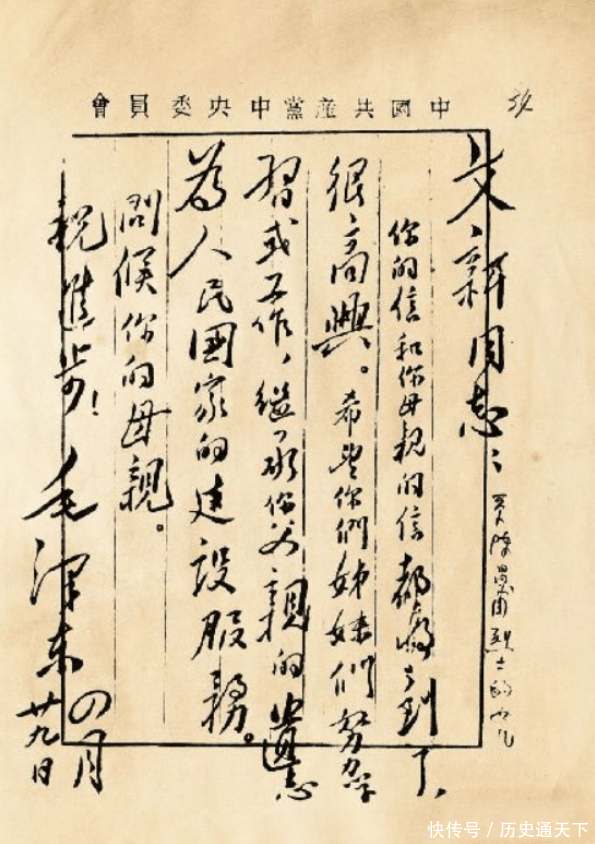 中國共産黨中央委員會
文新同志：
你的信和你母親的信都收到了，
很高興。希望你們姊妹們努力学
習或工作，繼承你父親的遺志
為人民國家的建設服務。
問候你的母親。
祝進步！
毛澤東
四月
廿九日
烈士的女儿
快传号／历史通天下